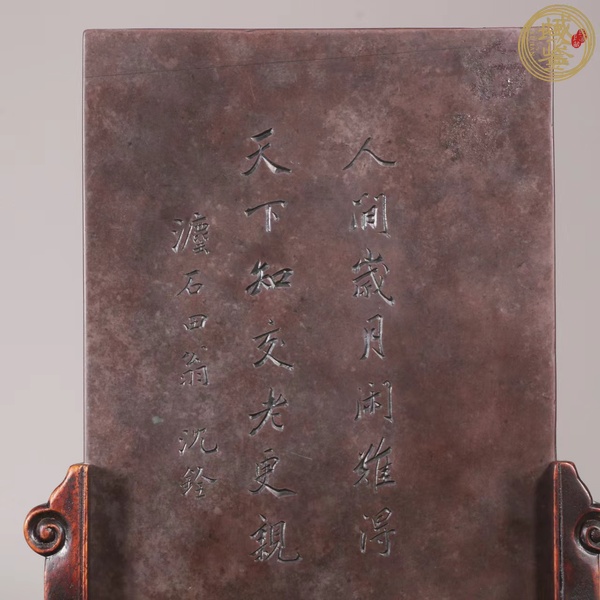 人間歲月閑難得
天下知交老更親
石田翁 沈銓